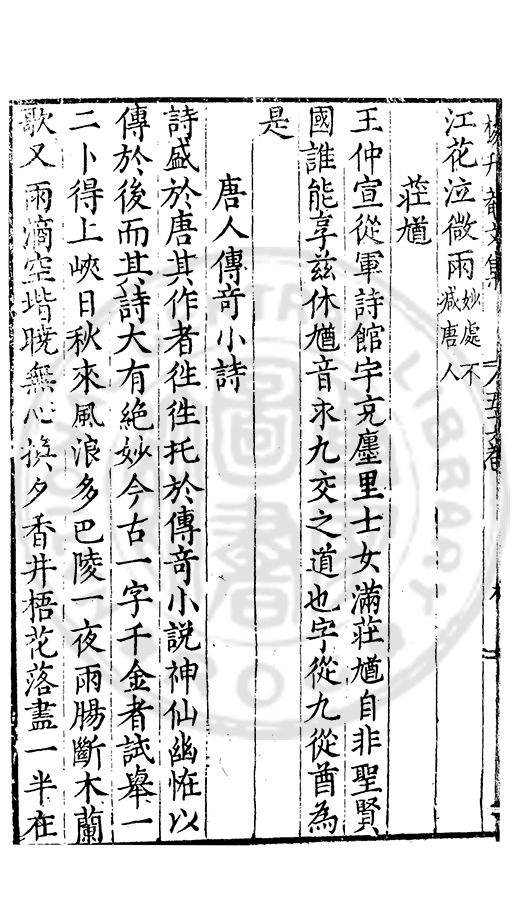 楊升菴文集 五十六卷
江花泣微雨妙處不減唐人
莊馗
王仲宣從軍詩館宇充廛里士女滿莊馗自非聖賢
國誰能享兹休馗音求九交之道也字從九從酋為
是
唐人傳奇小詩
詩盛於唐其作者徃徃托於傳奇小說神仙幽恠以
傳於後而其詩大有絶妙今古一字千金者試舉一
二卜得上峽日秋來風浪多巴陵一夜雨腸斷木蘭
歌又雨滴空堦曉無心換夕香井梧花落盡一半在